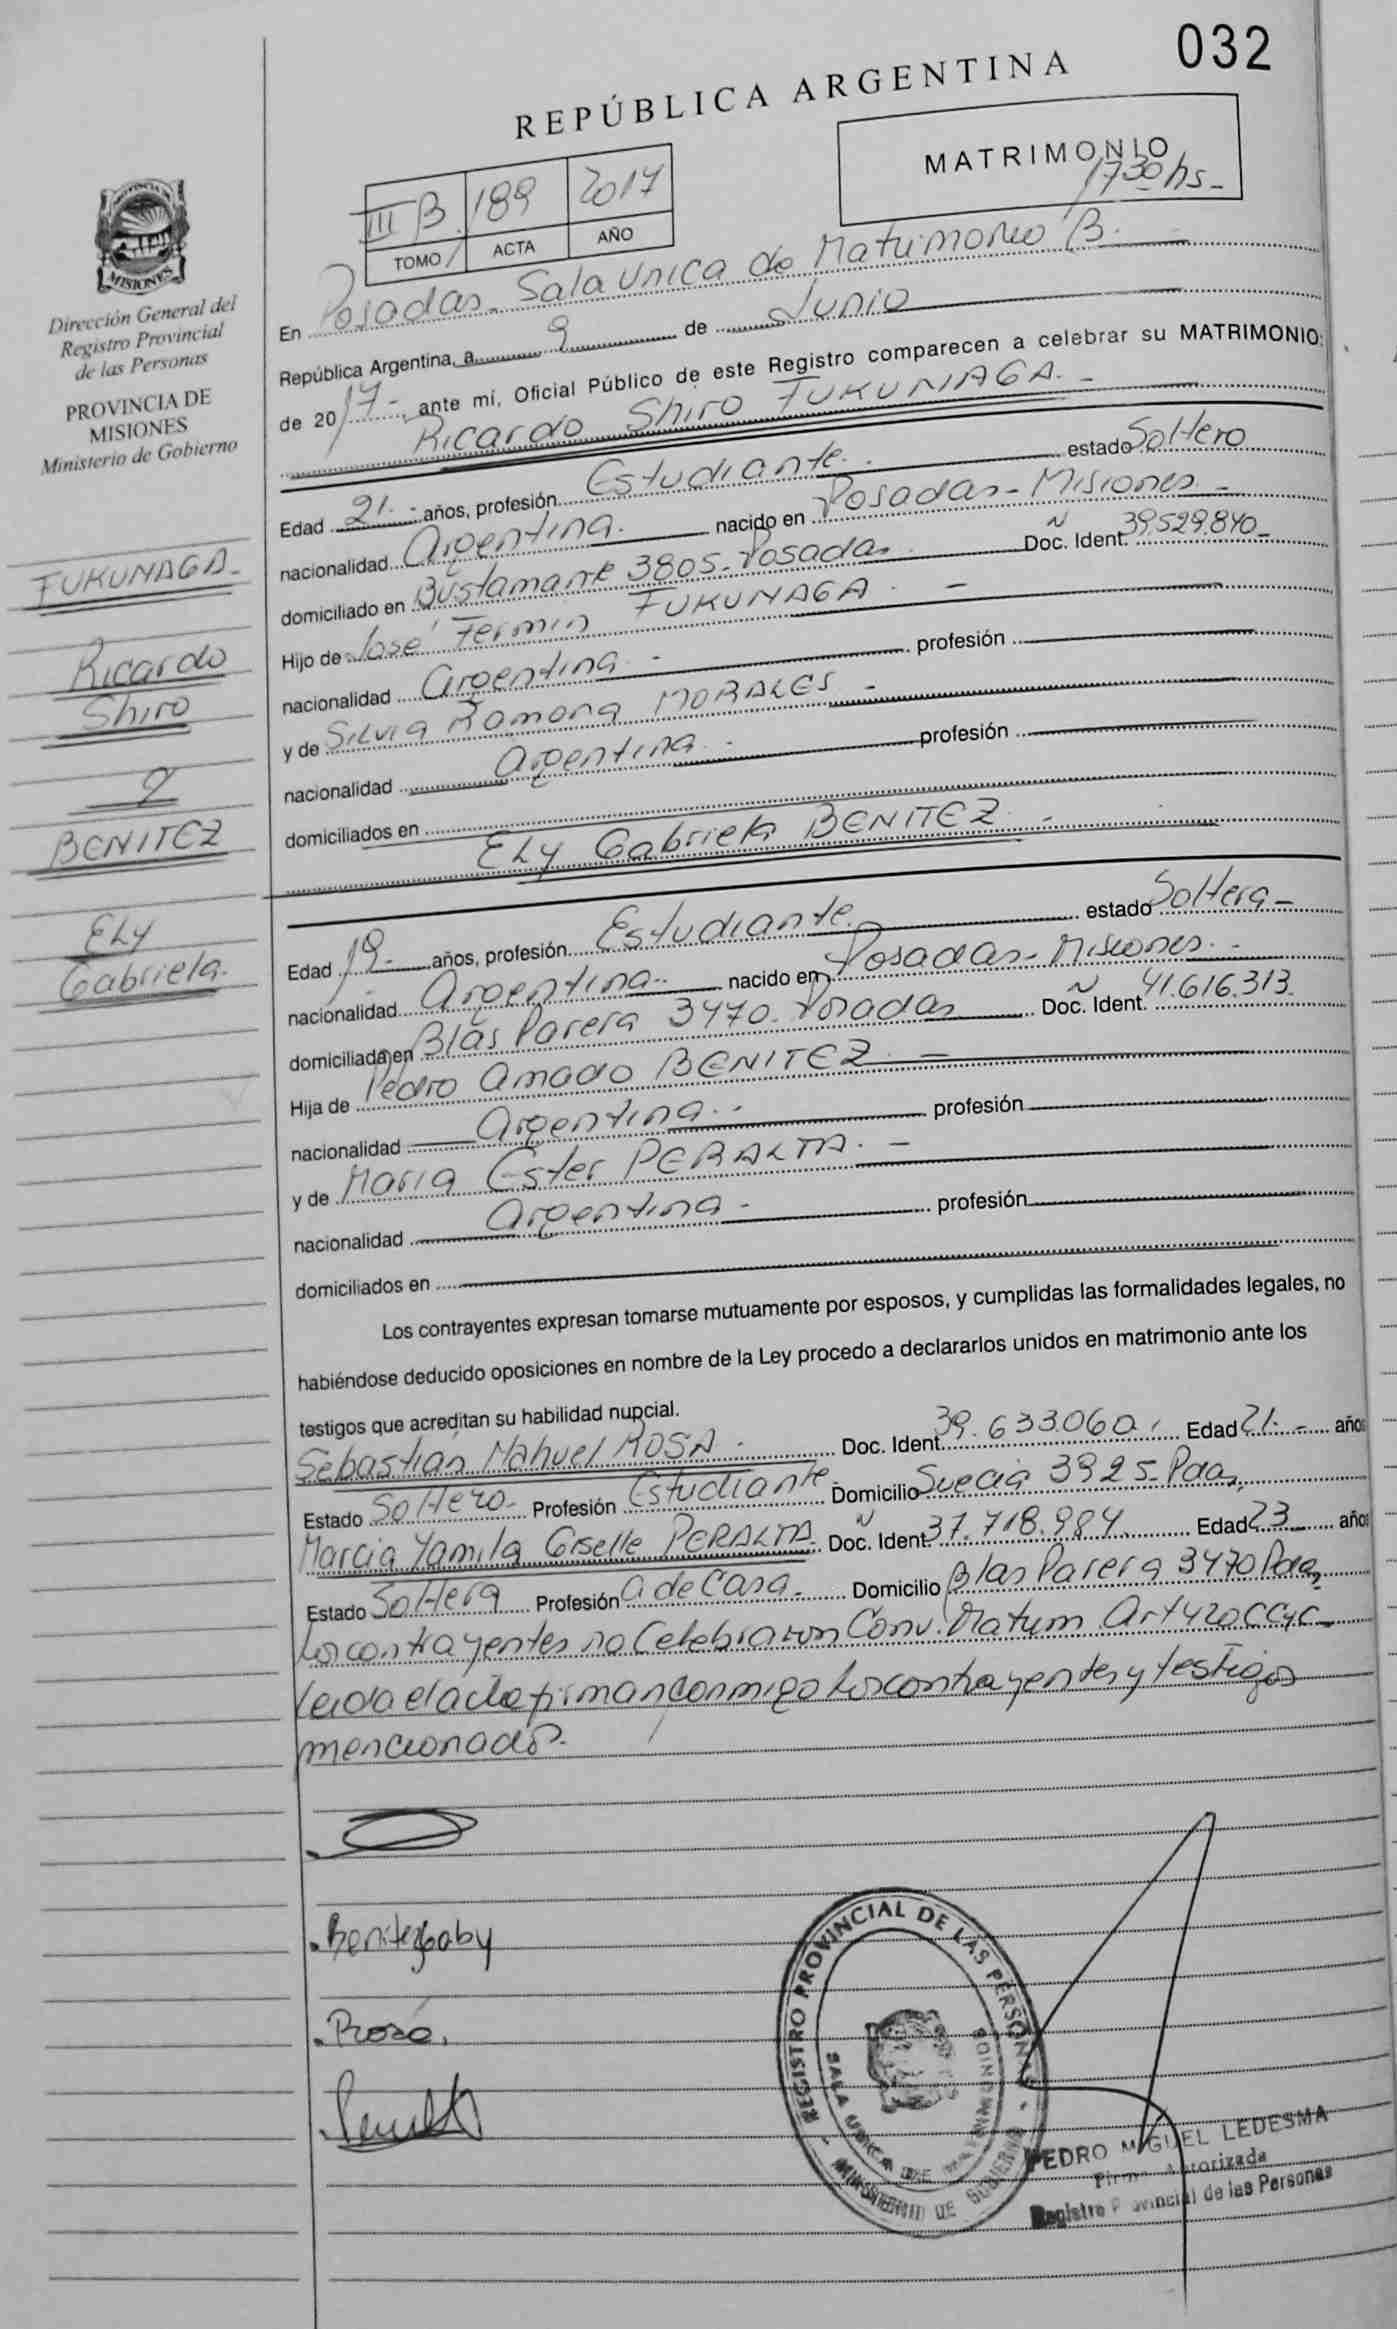 032
REPÚBLICA ARGENTINA
MATRIMONIO
1730 hs-
III B. 189 2017
TOMO ACTA AÑO
PROVINCIA DE
MISIONES
Dirección General del
Registro Provincial
de las Personas
PROVINCIA DE
MISIONES
Ministerio de Gobierno
FUKUNAGA-
Ricardo
Shiro
BENITEZ
ELY
Gabriela.
En Posadas-Sala Unica de Matrimonio B.
República Argentina, a 9 de Junio
de 2017-, ante mí, Oficial Público de este Registro comparecen a celebrar su MATRIMONIO:
Ricardo Shiro FUKUNAGA.-
Edad 21.- años, profesión Estudiante. estado Soltero
nacionalidad Argentina. nacido en Posadas-Misiones-
domiciliado en Bustamante 3805-Posadas Doc. Ident. 39.529.840-
Hijo de José Fermin FUKUNAGA.-
nacionalidad Argentina.- profesión
y de Silvia Ramona MORALES-
nacionalidad Argentina.- profesión
domiciliados en
ELY Gabriela BENITEZ.-
Edad 19- años, profesión Estudiante. estado Soltera-
nacionalidad Argentina.- nacido en Posadas-Misiones.-
domiciliada en Blas Parera 3470-Posadas Doc. Ident. 41.616.313.
Hija de Pedro Amado BENITEZ.-
nacionalidad Argentina.- profesión
y de Maria Ester PERALTA.-
nacionalidad Argentina- profesión
domiciliados en
Los contrayentes expresan tomarse mutuamente por esposos, y cumplidas las formalidades legales, no
habiéndose deducido oposiciones en nombre de la Ley procedo a declararlos unidos en matrimonio ante los
testigos que acreditan su habilidad nupcial.
Sebastián Mahuel ROSA- Doc. Ident. 39.633.060, Edad 21.- años
Estado Soltero- Profesión Estudiante. Domicilio Suecia 3925-Pdas,
Marcia Yamila Giselle PERALTA. Doc. Ident. 37.718.984. Edad 23- años
Estado Soltera Profesión A de Casa. Domicilio Blas Parera 3470 Pdas,
Los contrayentes no Celebraron Conv. Matrim. Art 420 CCyC-
Leida el acta firman conmigo los contrayentes y testigos
mencionados.
Benitez Gaby
REGISTRO PROVINCIAL DE LAS PERSONAS
SALA UNICA DE MATRIMONIOS
MINISTERIO DE GOBIERNO
PEDRO MIGUEL LEDESMA
Firma Autorizada
Registro Provincial de las Personas